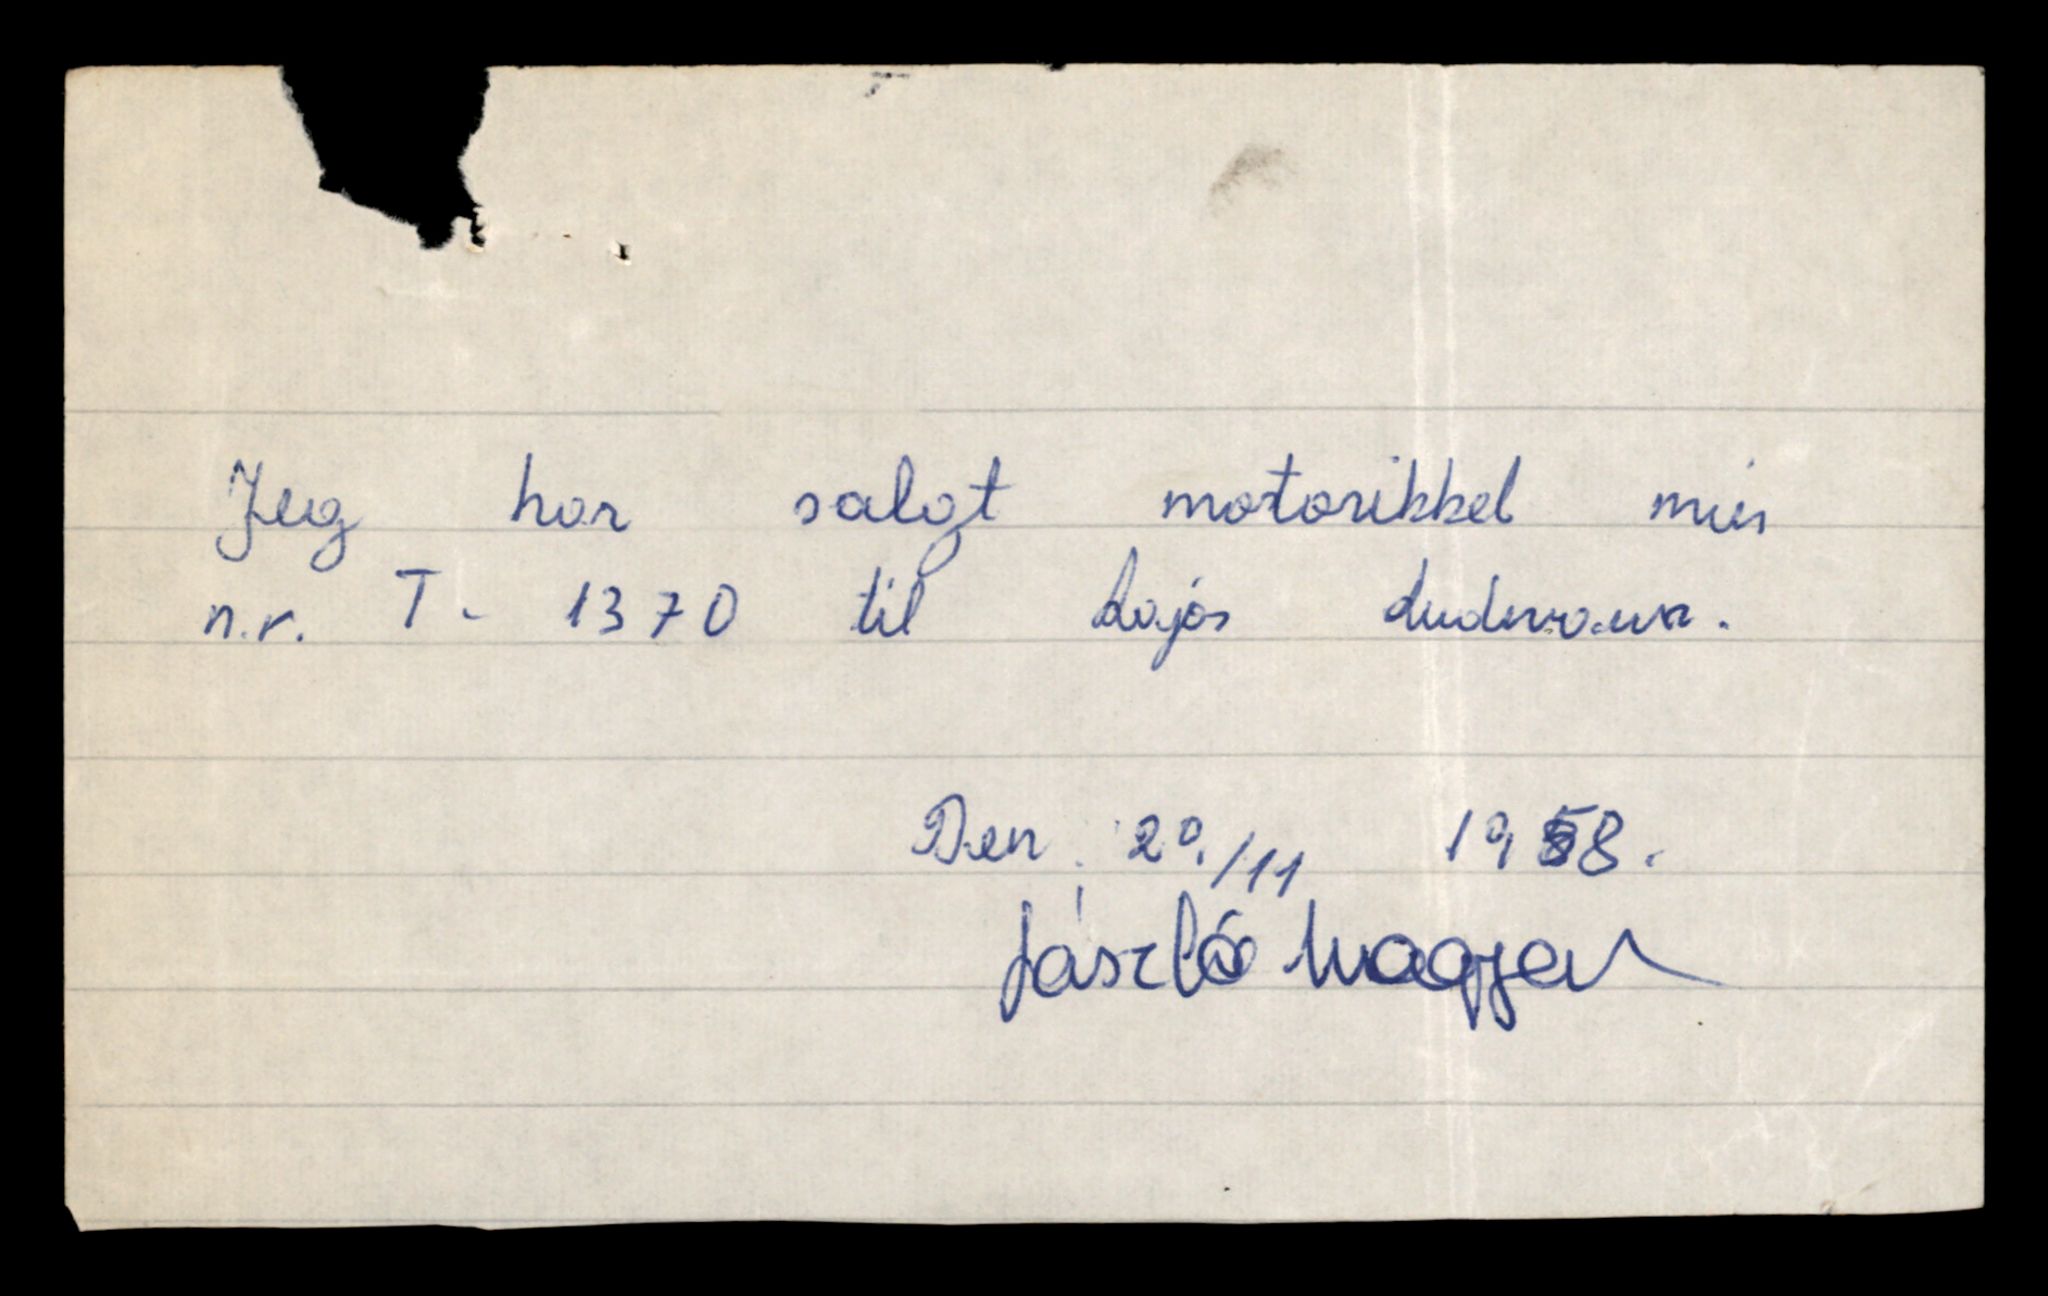 Jeg har salgt motorikkel min
n.r. T- 1370 til Lajos
Den 20/11 1958.
László Magyar